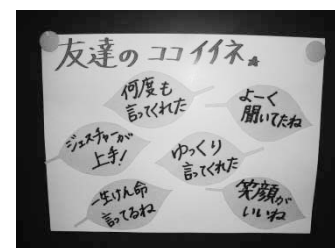 友達のココイイネ。
何度も
言ってくれた
よーく
聞いてたね
ジェスチャーが
上手!
ゆっくり
言ってくれた
一生けん命
言ってるね
笑顔が
いいね